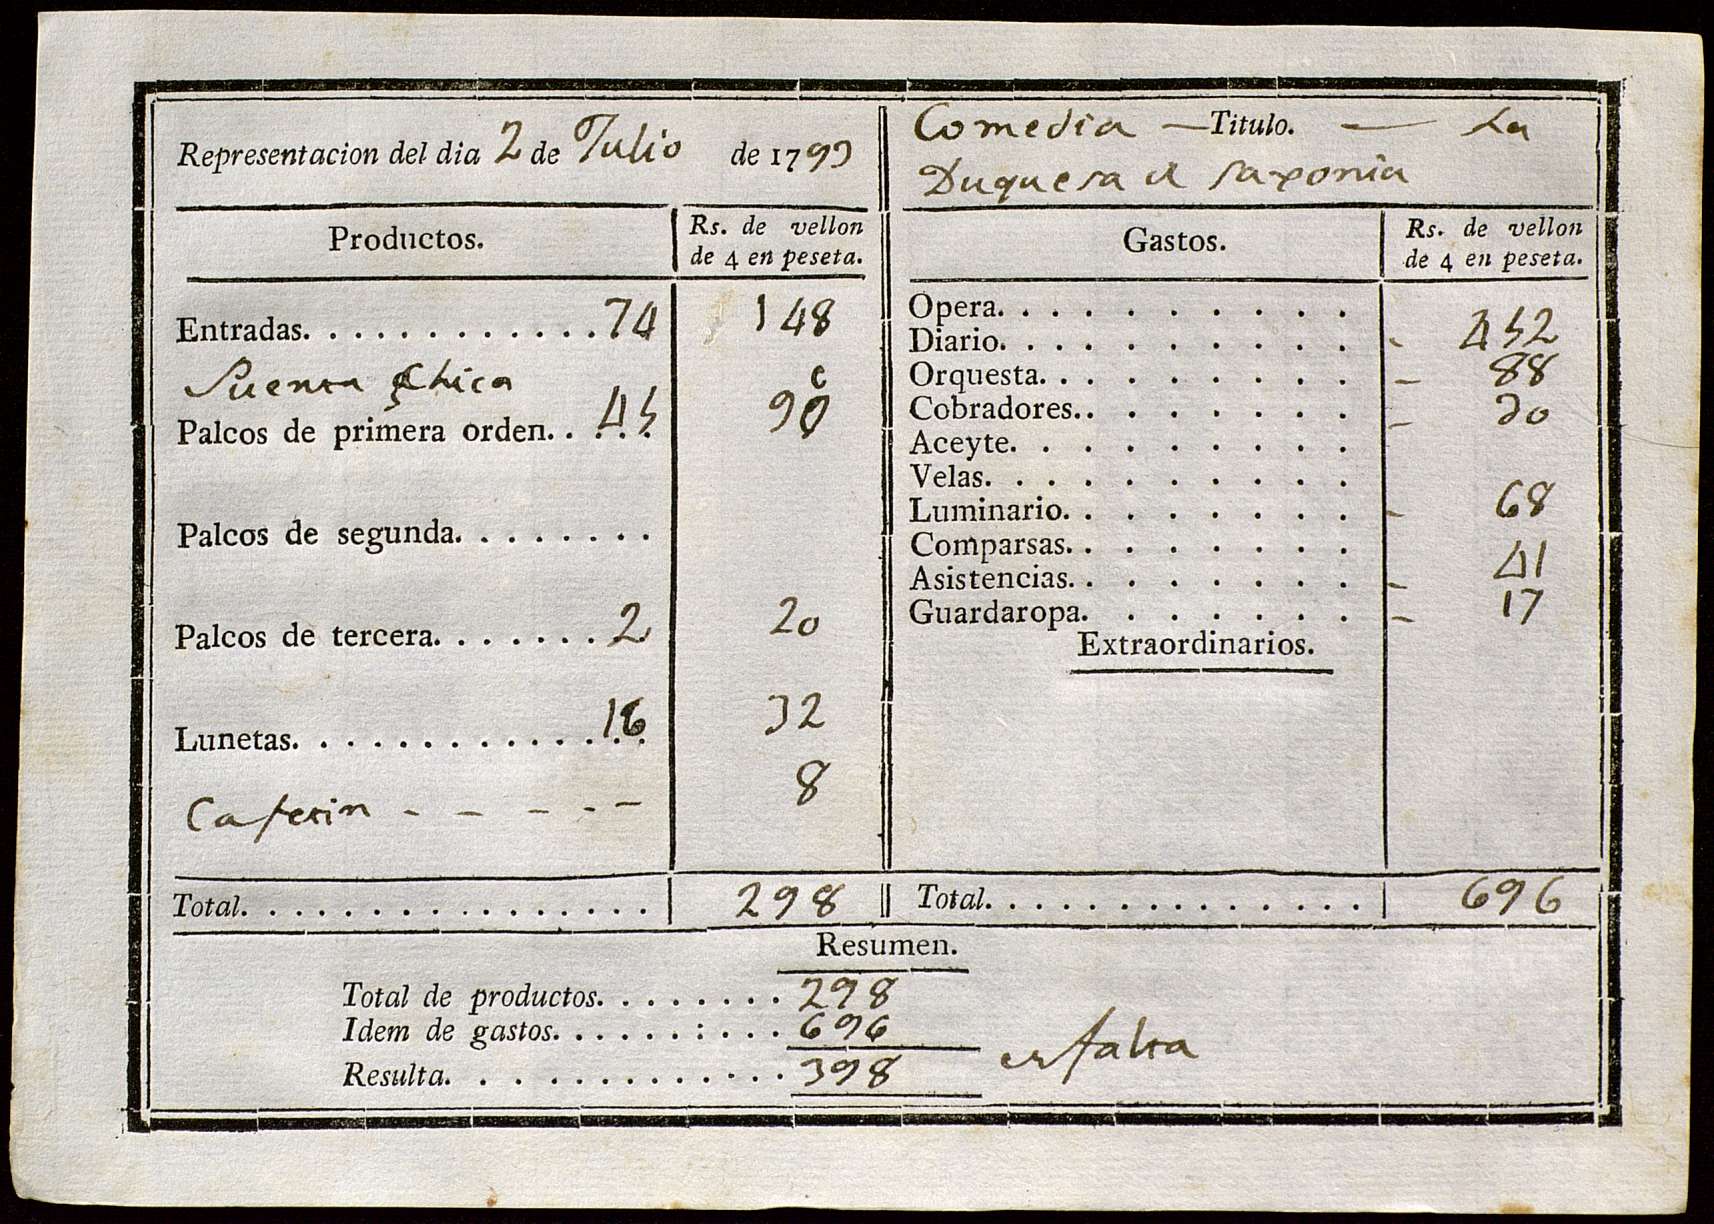 Representacion del dia 2 de Julio de 1793
Comedia — Titulo. — La
Duquesa de Saxonia
Productos.
Rs. de vellon
de 4 en peseta.
Entradas. . . . . . . . . . . . 74 148
Puerta Chica 45 90
Palcos de primera orden. . . . .
Palcos de segunda. . . . . . . .
Palcos de tercera. . . . . . . 2 20
Lunetas. . . . . . . . . . . . . . 16 32
Cafetin - - - - - 8
Total. . . . . . . . . . . . . . . . 298
Gastos.
Rs. de vellon
de 4 en peseta.
Opera. . . . . . . . . .
Diario. . . . . . . . . . - 452
Orquesta. . . . . . . . . - 88
Cobradores. . . . . . . . - 30
Aceyte. . . . . . . . . .
Velas. . . . . . . . . .
Luminario. . . . . . . . - 68
Comparsas. . . . . . . .
Asistencias. . . . . . . . - 41
Guardaropa. . . . . . . - 17
Extraordinarios.
Total. . . . . . . . . . . . . . . 696
Resumen.
Total de productos. . . . . . . . 298
Idem de gastos. . . . . . : . . . 696
Resulta. . . . . . . . . . . . . 398 falta